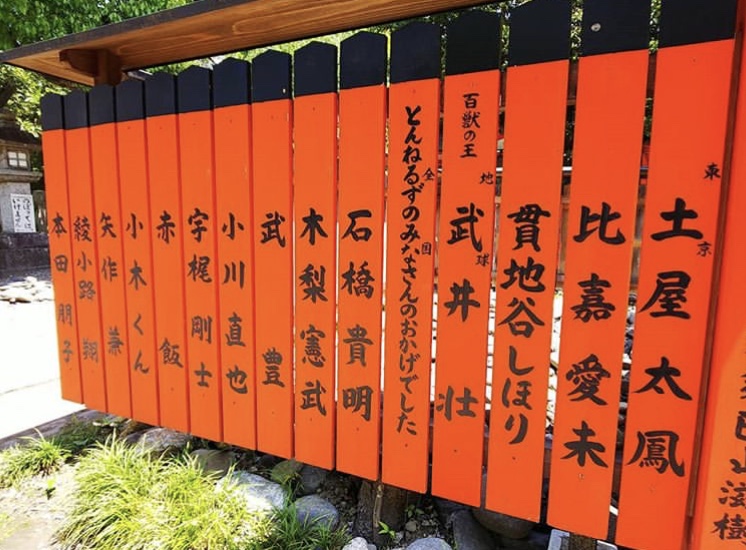 東京
土屋太鳳
比嘉愛未
貫地谷しほり
百獣の王
地球
武井壮
全国
とんねるずのみなさんのおかげでした
石橋貴明
木梨憲武
武豊
小川直也
宇梶剛士
赤飯
小木くん
矢作兼
綾小路翔
本田朋子